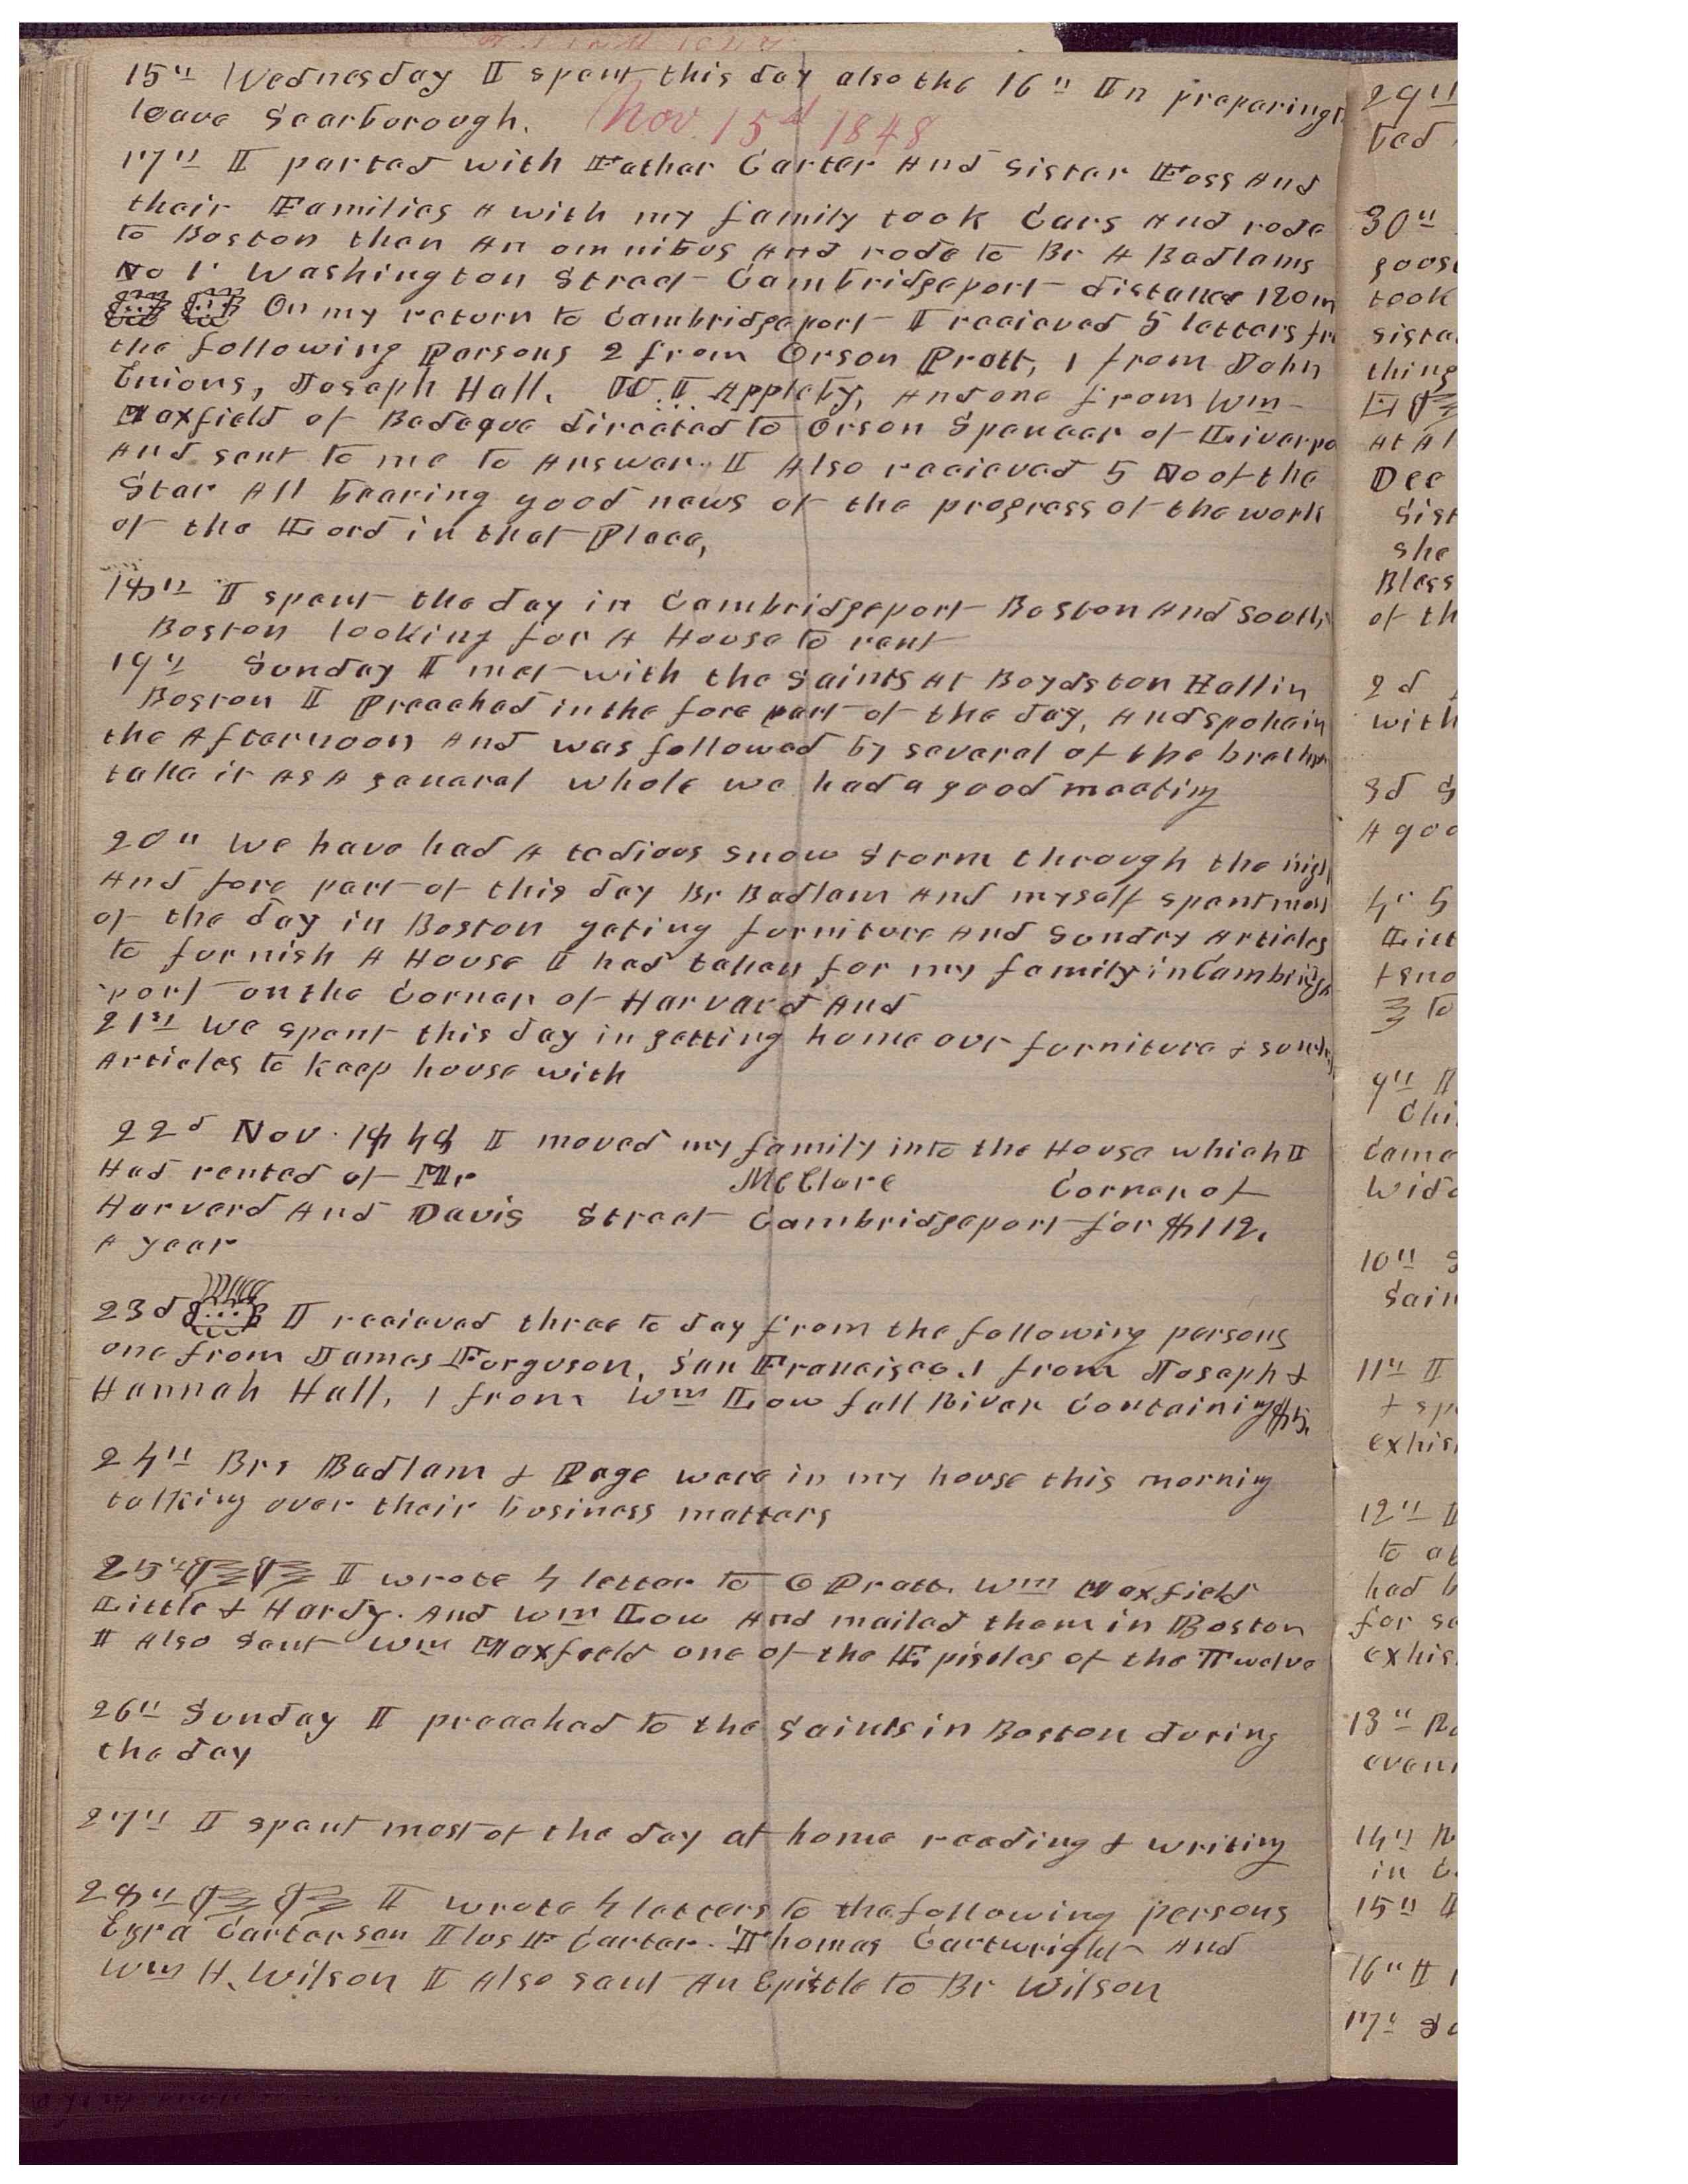 15th Wednesday I spent this day also the 16th In preparing to
leave Scarborough. Nov. 15th 1848
17th I parted with Father Carter And Sister Foss And
their Families & with my family took Cars And rode
to Boston then An omnibus And rode to Br A Badlams
No 1 Washington Street Cambridgeport distance 120 m
On my return to Cambridgeport I recieved 5 letters fr
the following Persons 2 from Orson Pratt, 1 from John
Enions, Joseph Hall. W. I Appleby, And one from Wm
Maxfield of Bedeque directed to Orson Spencer of Liverpo
And sent to me to Answer. I Also recieved 5 No of the
Star All bearing good news of the progress of the work
of the Lord in that Place,
18th I spent the day in Cambridgeport Boston And South
Boston looking for A House to rent
19th Sunday I met with the Saints At Boydston Hall in
Boston I Preached in the fore part of the day, And spoke in
the Afternoon And was followed by several of the brethren
take it As A general whole we had a good meeting
20th We have had A tedious snow storm through the night
And fore part of this day Br Badlam And myself spent most
of the day in Boston geting furniture And Sundry Articles
to furnish A House I had taken for my family in Cambridge
port on the Corner of Harvard And
21st We spent this day in getting home our furniture & sundry
Articles to keep house with
22d Nov. 1848 I moved my family into the House which I
Had rented of Mr McClure Corner of
Harvard And Davis Street Cambridgeport for $112.
A year
23d I recieved three to day from the following persons
one from James Ferguson, San Francisco. 1 from Joseph &
Hannah Hall, 1 from Wm Low fall River Containing $5.
24th Brs Badlam & Page were in my house this morning
talking over their business matters
25th I wrote 4 letter to O Pratt. Wm Maxfield
Little & Hardy. And Wm Low And mailed them in Boston
I Also Sent Wm Maxfield one of the Episeles of the Twelve
26th Sunday I preached to the Saints in Boston during
the day
27th I spent most of the day at home reading & writing
28th I wrote 4 letters to the following persons
Ezra Carter sen Ilus F Carter. Thomas Cartwright And
Wm H. Wilson I Also sent An Epistle to Br Wilson
29th
bed
30th
goose
took
sister
thing
At Al
Dec
Sist
she
Bless
of th
2d
with
3d S
A goo
4. 5
Litt
& sno
to
9th I
Chi
Came
Wido
10th S
Sain
11th I
& sp
exhis
12th I
to at
had b
for so
exhis
13th
eveni
14th
in C
15th I
16th I
17th Su